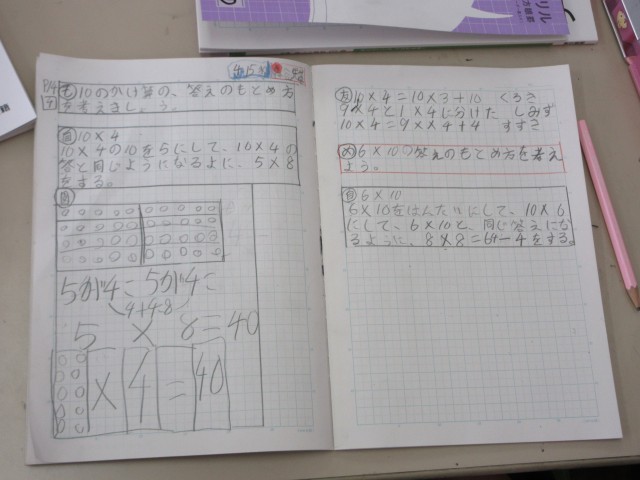 P14
4/15
も 10のかけ算の、答えのもとめ方
を考えましょう。
自 10×4
10×4の10を5にして、10×4の
答と同じようになるよに、5×8
をする。
図
5が4こ 5が4こ
4+4=8
5 × 8=40
× 4 = 40
友 10×4=10×3+10 くろさ
9×4と1×4に分けた しみず
10×4=9××4+4 すずき
6×10の答えのもとめ方を考え
よう。
自 6×10
6×10をはんたいにして、10×6
にして、6×10と、同じ答えにな
るように、8×8=64-4をする。
ドリル